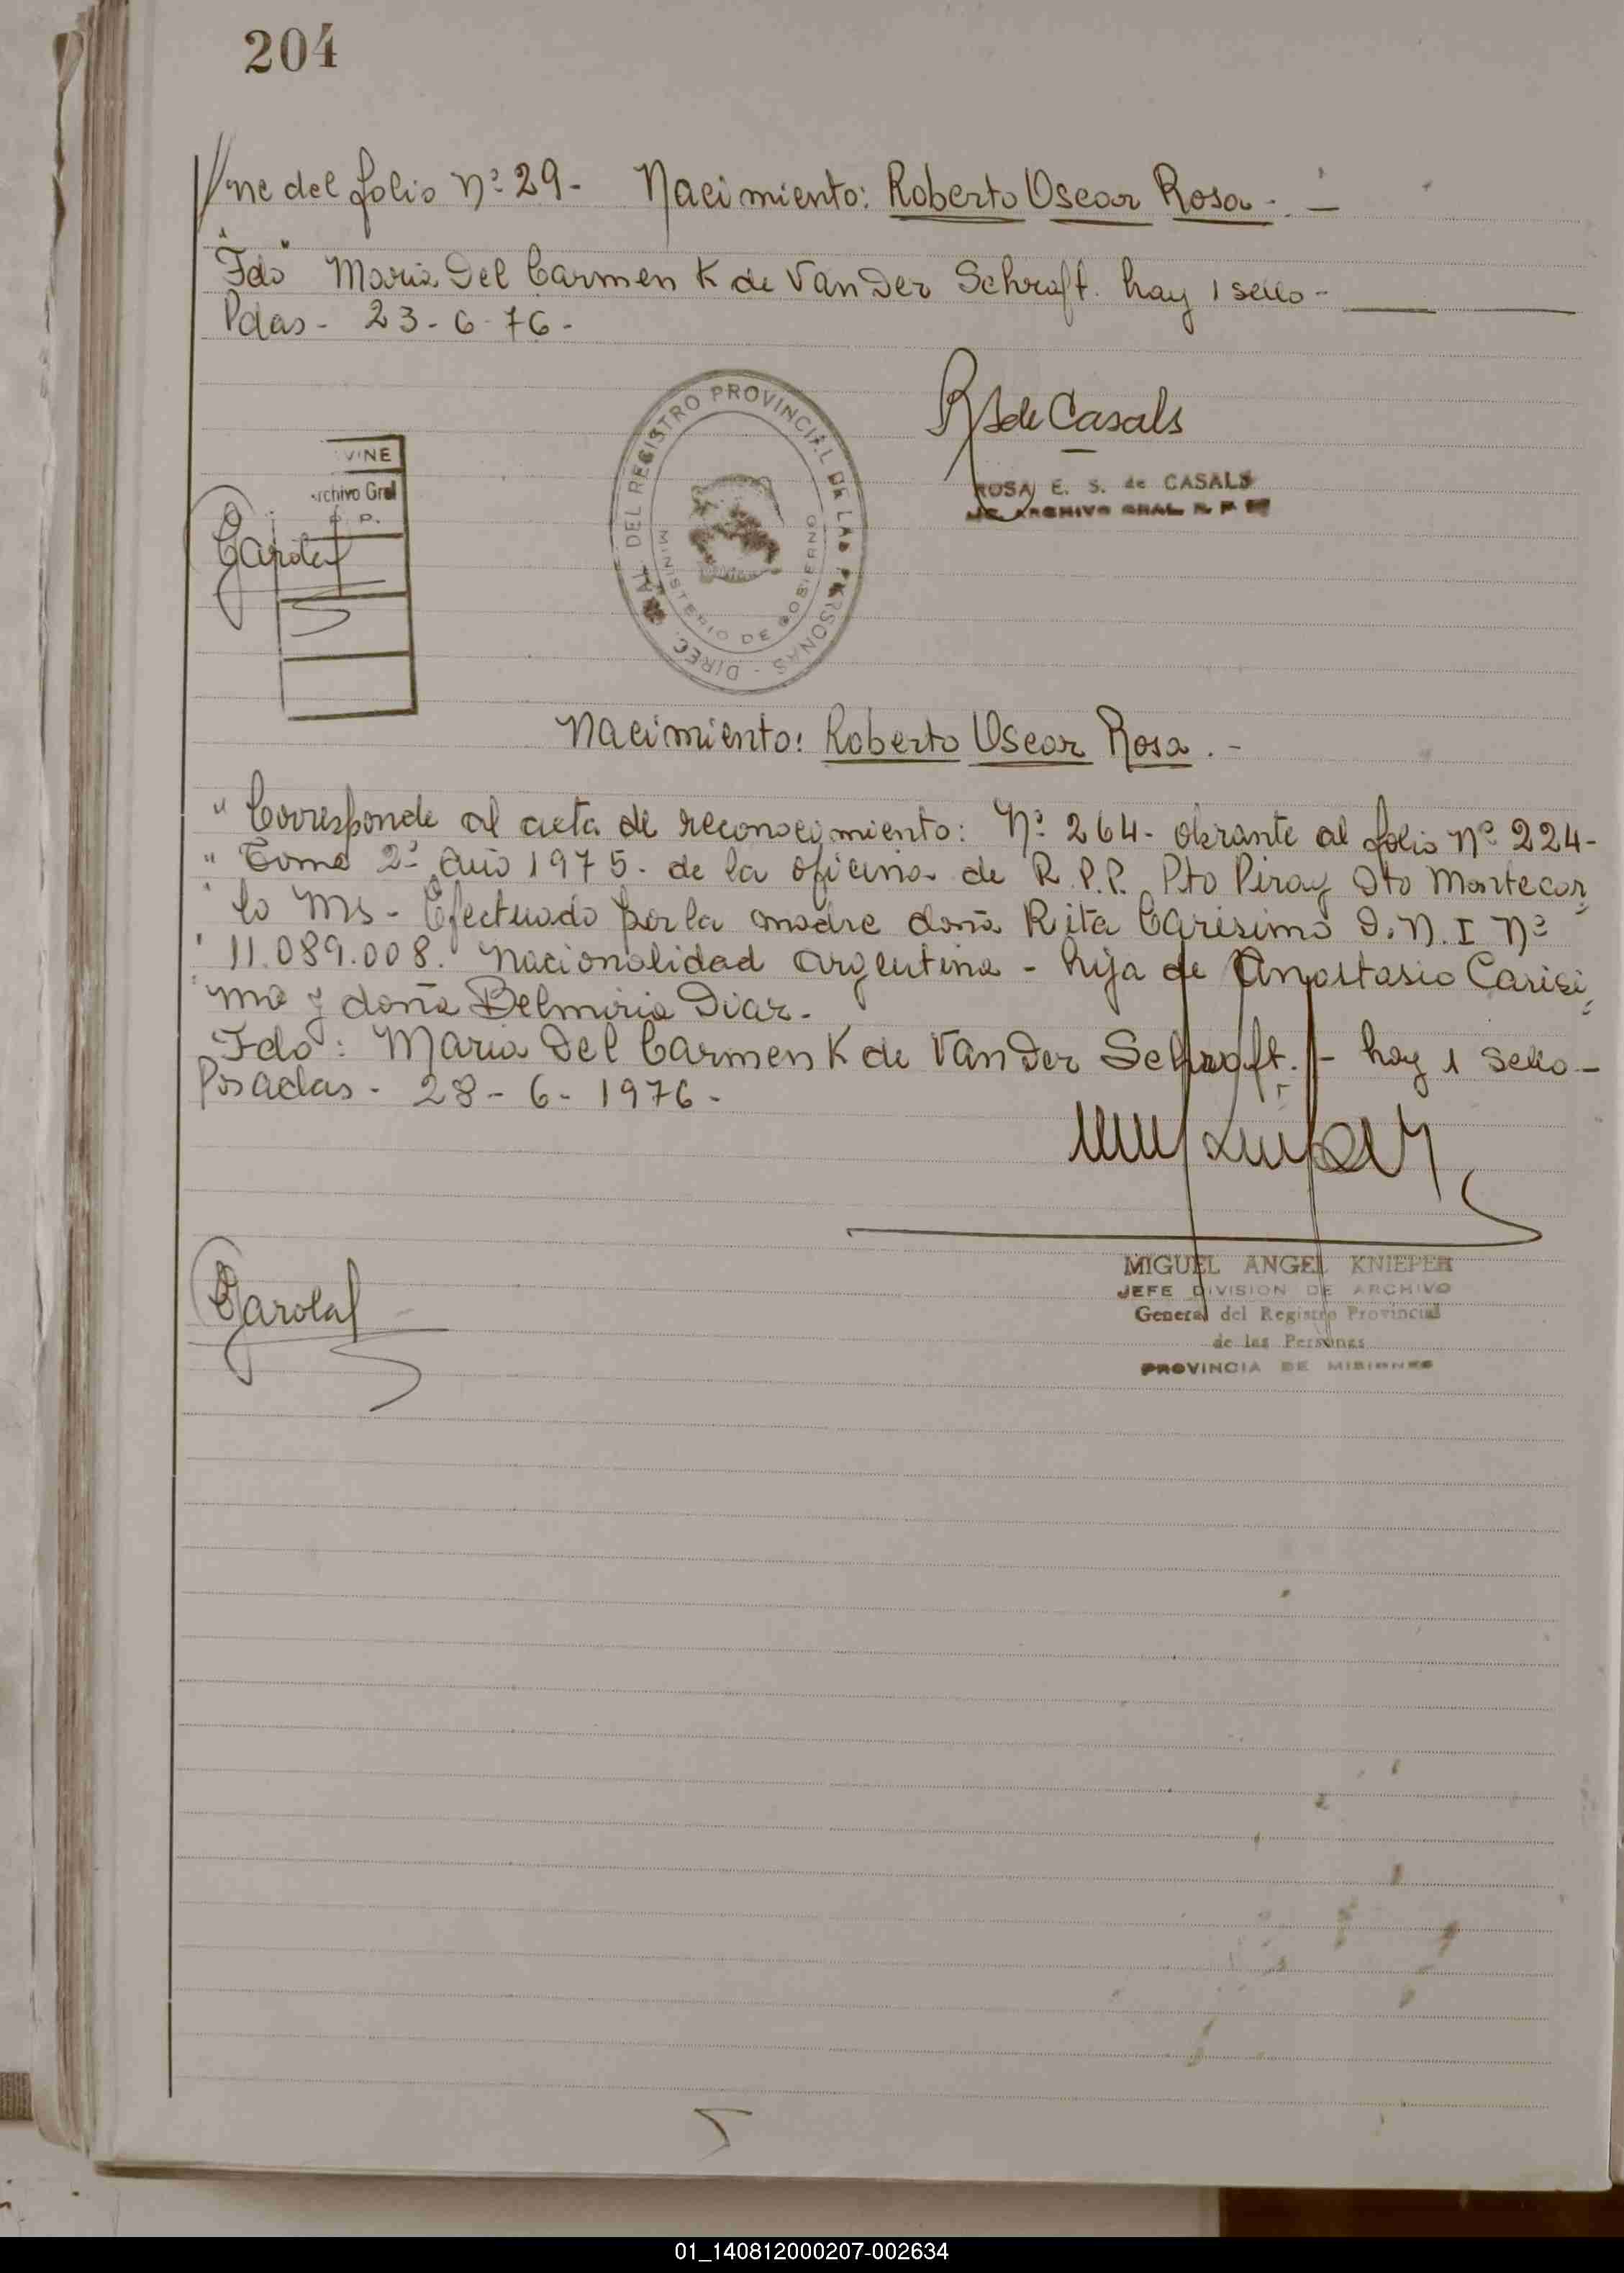 204
//ne del folio Nº 29- Nacimiento: Roberto Oscar Rosa. -
"Fdo" Maria Del Carmen K de Van Der Schraft. hay 1 sello-
Pdas- 23-6-76-
DIREC. GRAL. DEL REGISTRO PROVINCIAL DE LAS PERSONAS -
MINISTERIO DE GOBIERNO
RS de Casals
ROSA E. S. de CASALS
ARCHIVO GRAL R P
VINE
rchivo Gral
P.
Nacimiento: Roberto Oscar Rosa.-
" Corresponde al acta de reconocimiento: Nº 264- obrante al folio Nº 224-
" Tomo 2º Año 1975- de la oficina de R.P.P. Pto Piray Dto Montecar
" lo Ms- Efectuado por la madre doña Rita Carisimo D.N.I Nº
" 11.089.008. Nacionalidad Argentina - hija de Anastasio Carisi
" mo y doña Belmiria Diaz-
Fdo: Maria Del Carmen K de Van Der Schraft.- hay 1 sello-
Posadas- 28-6-1976-
MIGUEL ANGEL KNIEPER
JEFE DIVISION DE ARCHIVO
General del Registro Provincial
de las Personas
PROVINCIA DE MISIONES
01_140812000207-002634